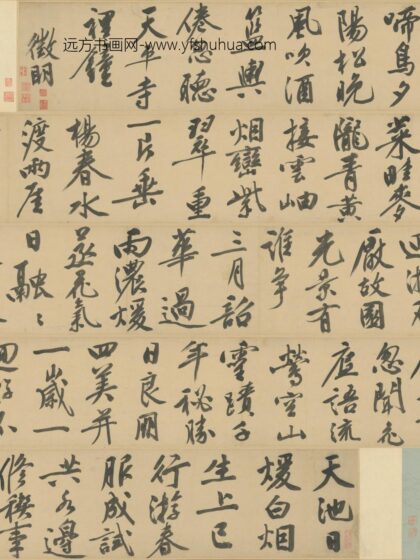 天池日
煖白烟
生上巳
行游春
服成試
共水邊
修禊事
忽聞花
底語流
鶯空山
靈蹟千
年秘勝
日良朋
四美并
一歲一
厭故國
光景有
誰爭
三月韶
華過
雨濃煖
蒸花氣
日融〻
菜畦麥
隴青黃
接雲岫
烟巒紫
翠重
一片垂
楊春水
渡兩崖
啼鳥夕
陽松晚
風吹酒
籃輿
倦忽聽
天平寺
裡鐘
徵明
远方书画网-www.yfshuhua.com